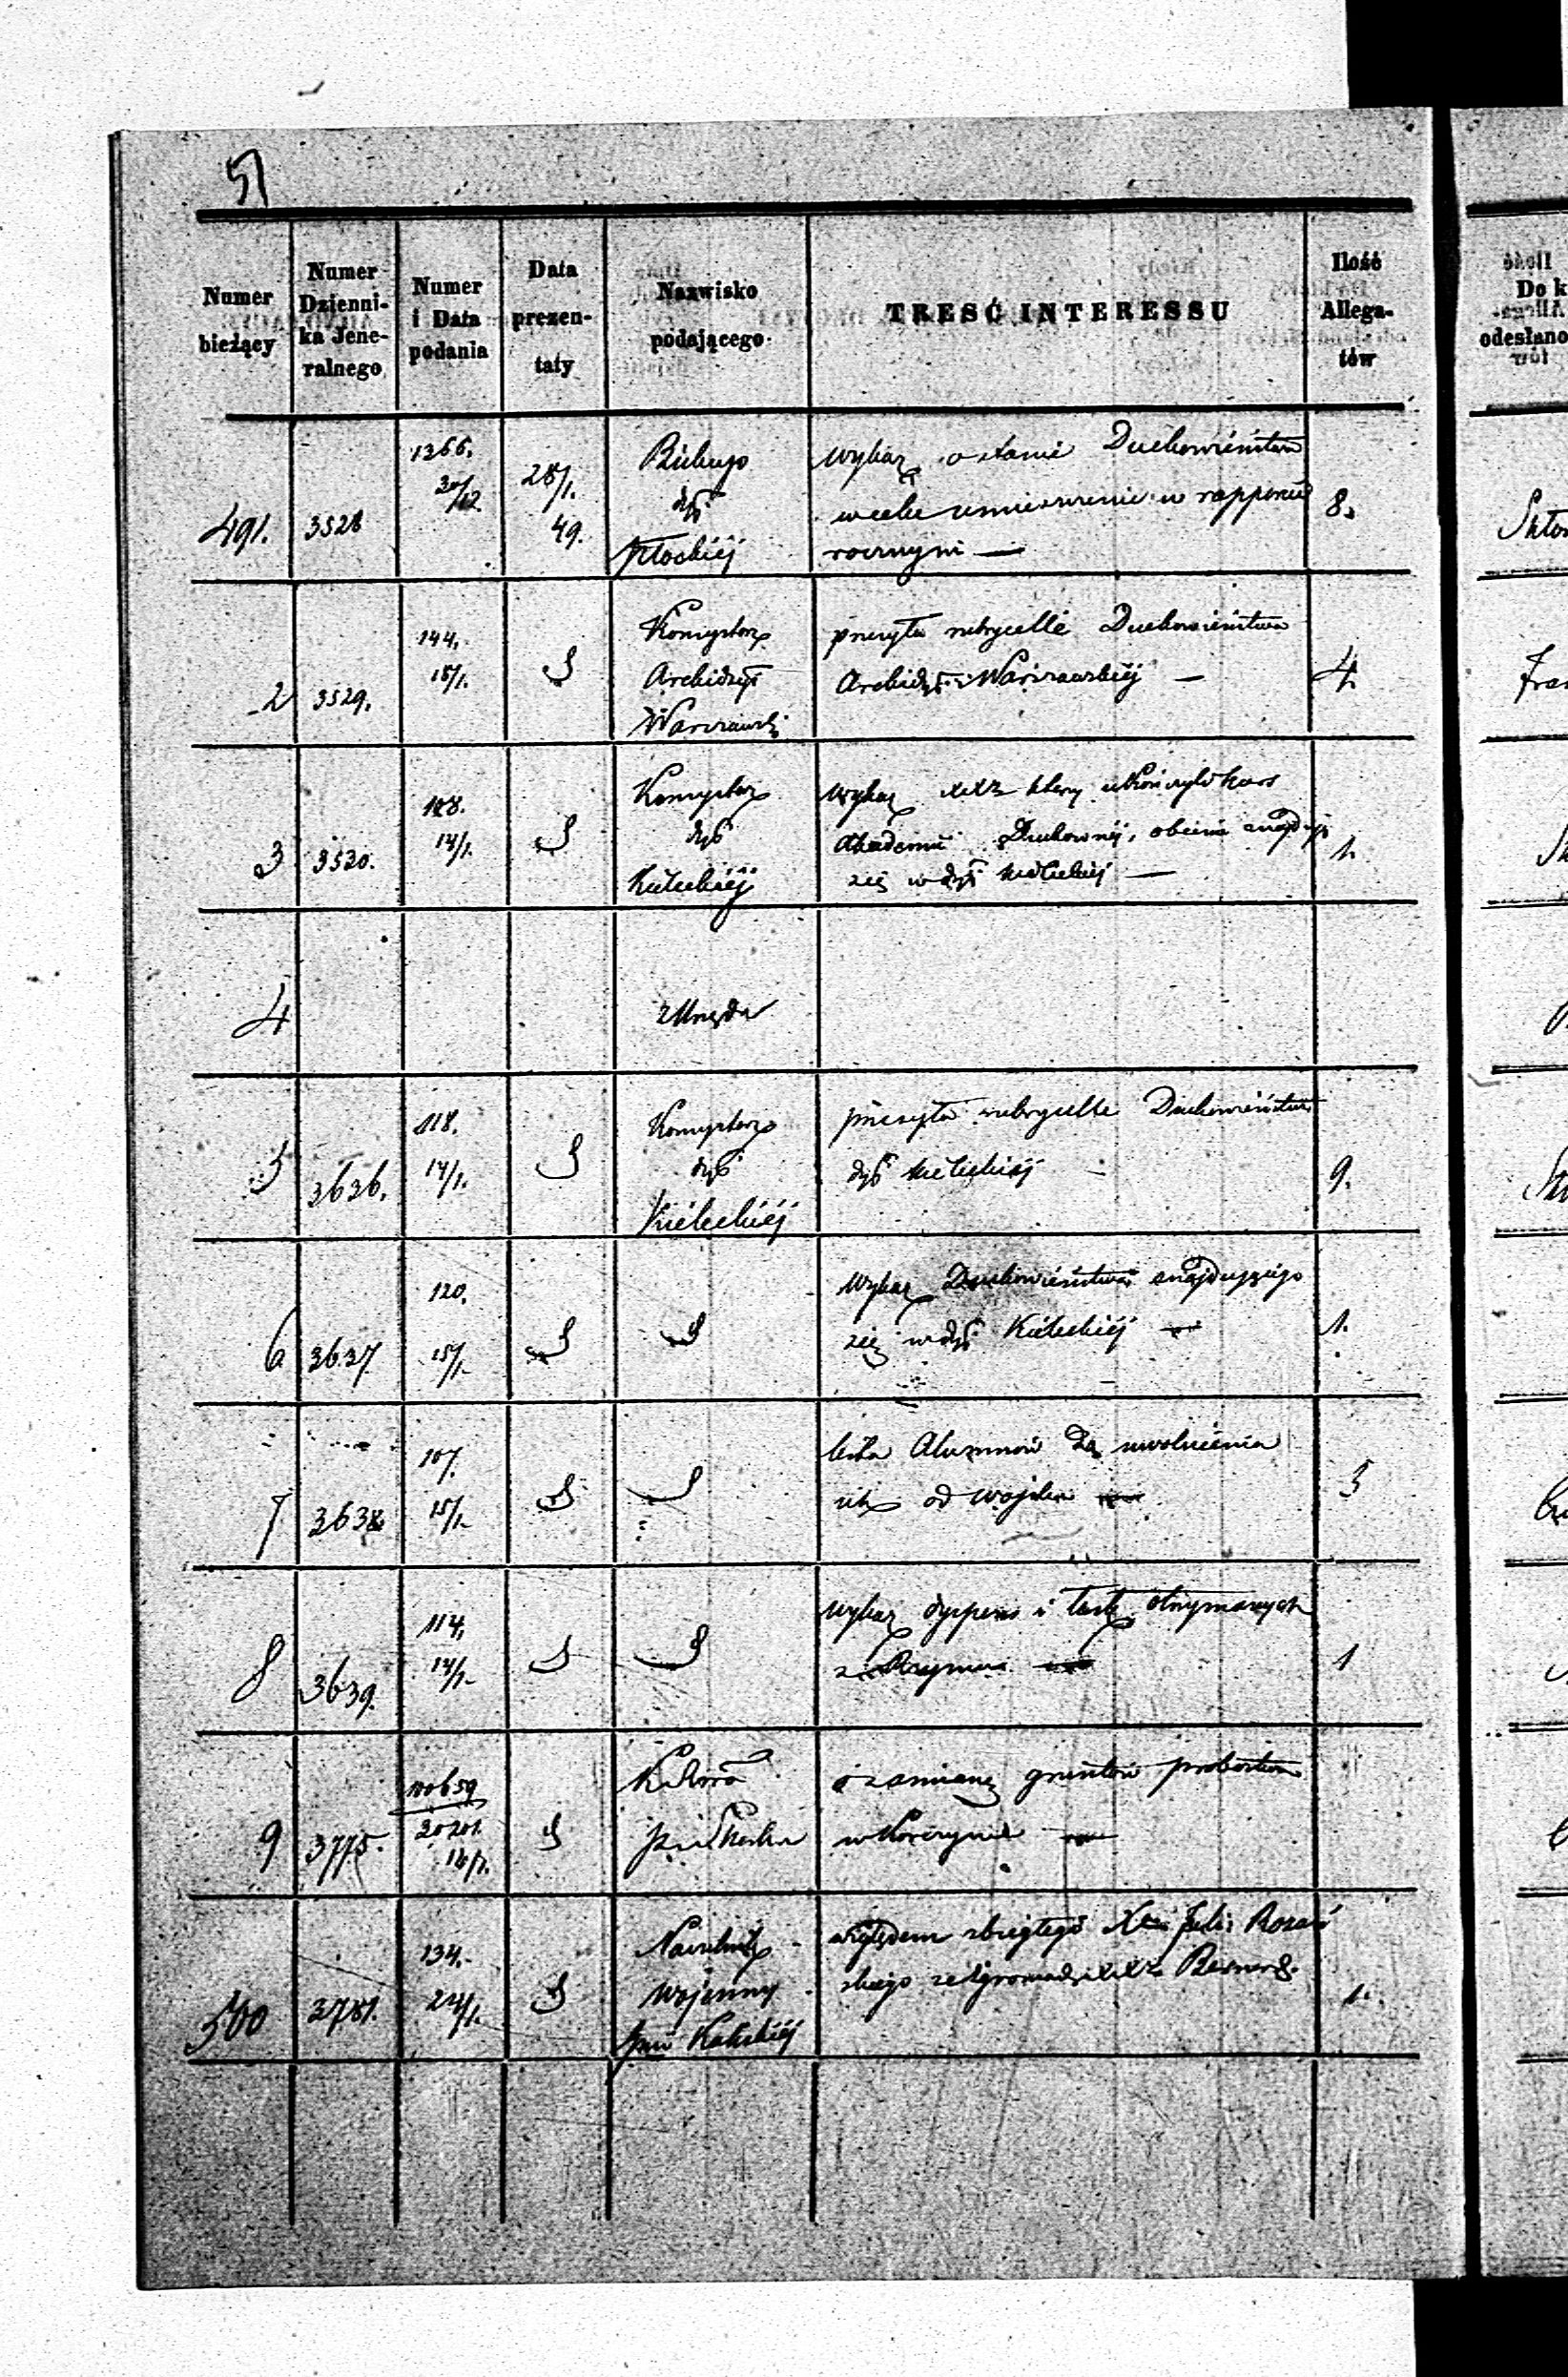 51
Numer bieżący
Numer Dzienni- ka Jene- ralnego
Numer i Data podania
Data prezen- taty
Nazwisko podającego
TREŚĆ INTERESSU
Ilość Allega- tów
Do k
odesłano
491. 3528 1366. 30/12 28/1. 49. Biskup dyś Płockiéj
wykaz o stanie Duchowieństwa
w celu umieszczenie w rapporcie 8.
rocznym —
2 3529. 144. 18/1. Konsystorz Archidyś Warszawsk.
przesyła rubrycelle Duchowieństwa
Archidyś Warszawskiéj — 4
3 3530. 108. 14/1. Konsystorz dyś Kieleckiéj
Wykaz xxż który ukończyli kurs
Akademii Duchownéj, obecnie znajduj 1.
się w dyś Kieleckiéj —
4 z Urzędu
5 3636. 118. 14/1. Konsystorz dyś Kieleckiéj
przesyła rubrycelle Duchowieństwa
dyś Kieleckiéj — 9.
6 3637 120. 15/1.
Wykaz Duchowieństwa znajdującego
się w dyś Kieleckiéj — 1.
7 3638 107. 15/1.
lista Alumnów do uwolnienia
ich od wojska — 5
8 3639. 114. 14/1.
wykaz dyspens i łask otrzymanych
z Rzymu — 1
9 3775. 100659 20201. 18/1.
o zamianę gruntów probostwa
w Korczynie —
500 3781. 134. 24/1. Naczelnik Wojenny Kaliskiéj
względem zbiegłego
skiego ze Zgromadz. xxż Bernard. 1.